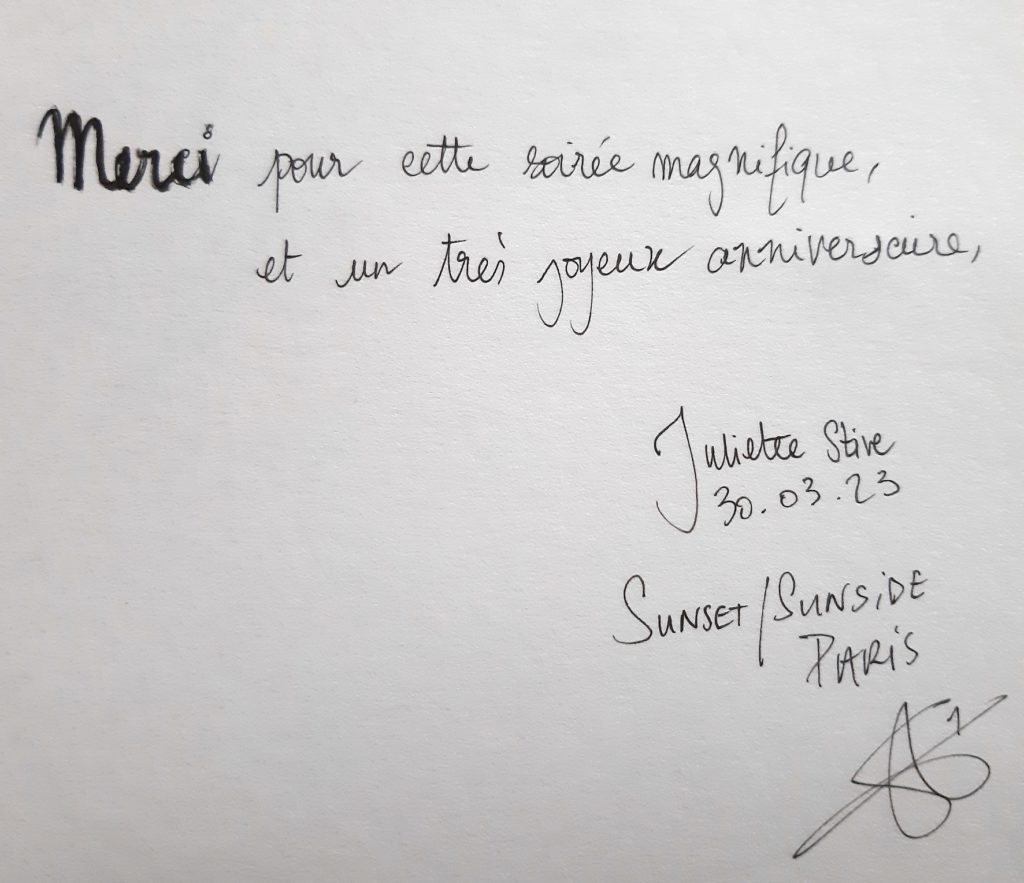 Merci pour cette soirée magnifique,
et un très joyeux anniversaire,
Juliette Stive
30.03.23
SUNSET/SUNSiDE
PARiS